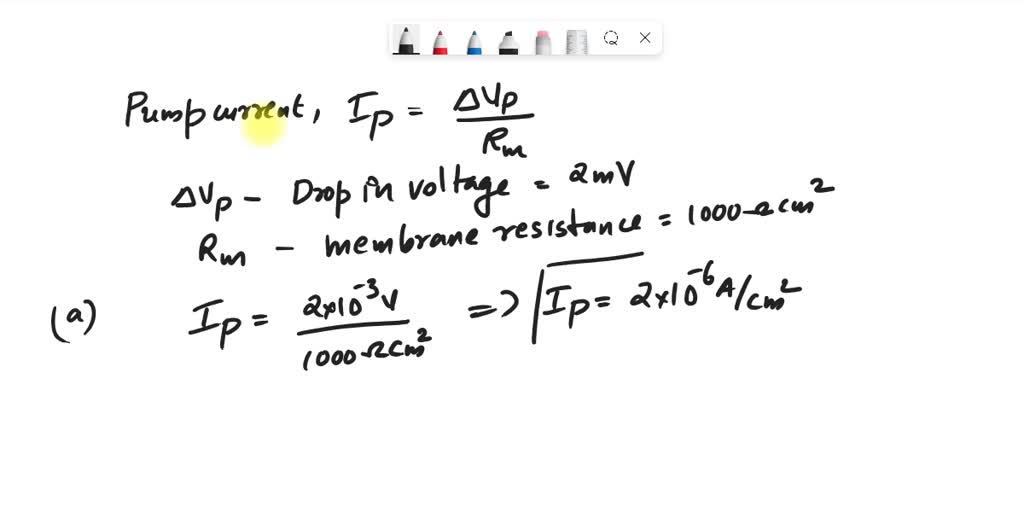 Pump current, Ip = ΔVp / Rm
ΔVp - Drop in voltage = 2mV
Rm - membrane resistance = 1000 Ω cm²
(a) Ip = 2×10⁻³V / 1000 Ω cm² => Ip = 2×10⁻⁶ A/cm²